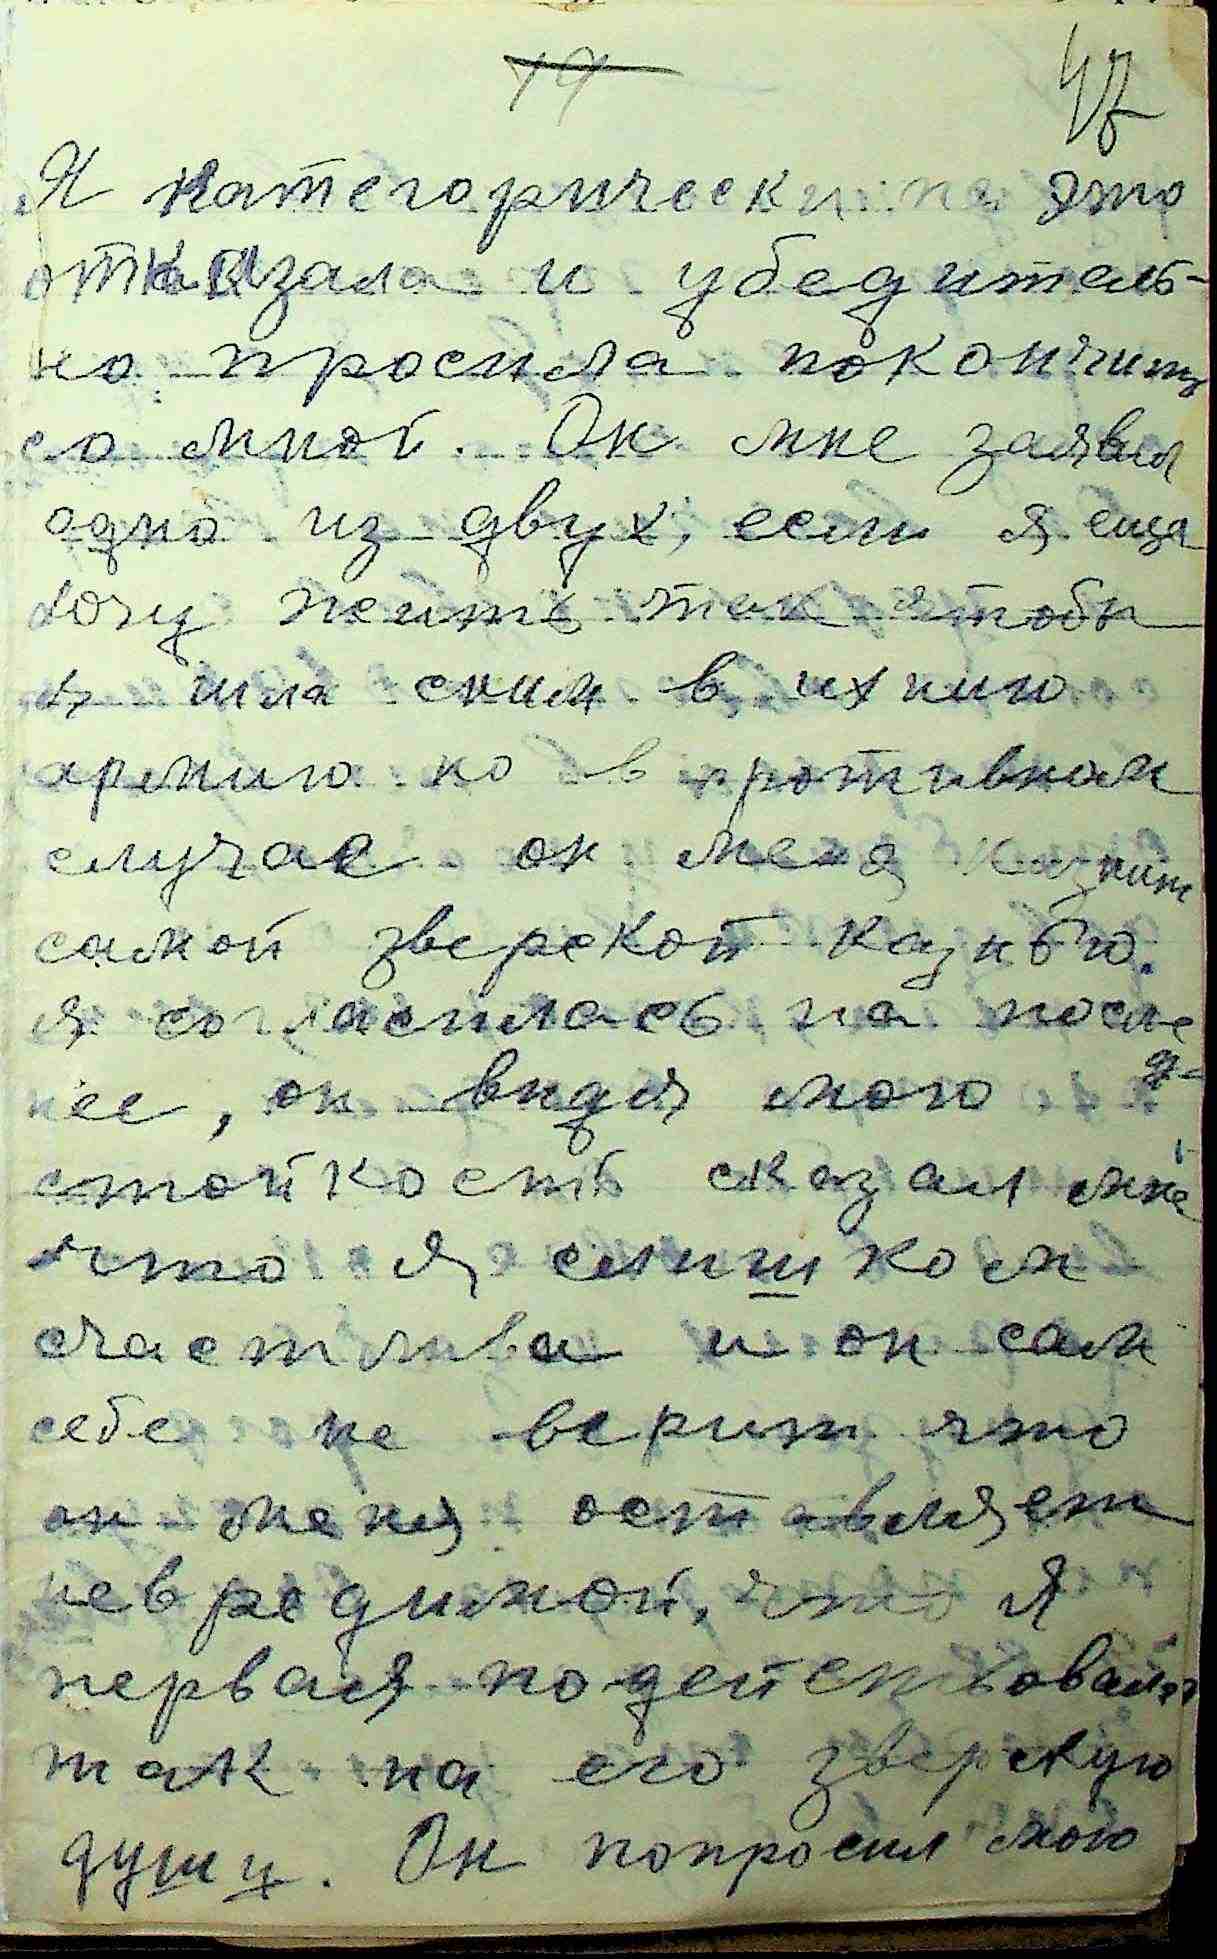 19 47
Я категорически на это
отказала и убедитель-
но просила покончить
со мной. Он мне заявил
одно из двух, если я еще
хочу жить так чтобы
я шла сним в ихнию
армию но в противном
случае он меня казнит
самой зверской казнью.
Я согласилась на послед-
нее, он видя мою
стойкость сказал мне
что я слишком
счастлива и он сам
себе не верит что
он меня оставляет
невредимой, что я
первая подействовала
так на его зверскую
душу. Он попросил мою